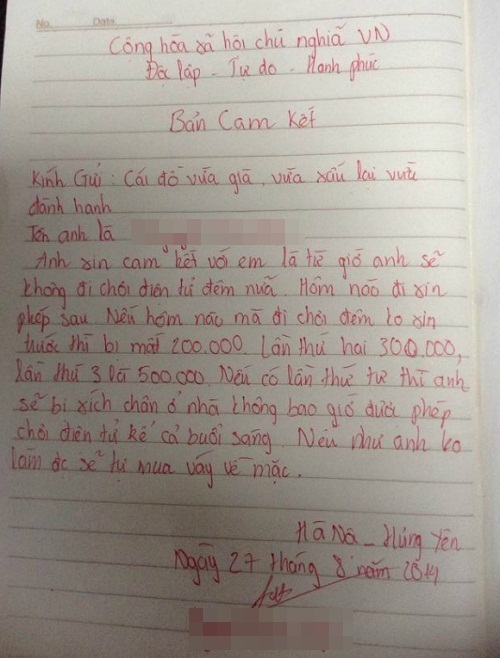 No. Date
Cộng hòa xã hội chủ nghĩa VN
Độc lập - Tự do - Hạnh phúc
Bản Cam Kết
Kính Gửi: Cái đồ vừa già, vừa xấu lại vừa
đành hanh
Tên anh là
Anh xin cam kết với em là từ giờ anh sẽ
không đi chơi điện tử đêm nữa. Hôm nào đi xin
phép sau. Nếu hôm nào mà đi chơi đêm ko xin
trước thì bị mất 200.000. Lần thứ hai 300.000,
lần thứ 3 là 500.000. Nếu có lần thứ tư thì anh
sẽ bị xích chân ở nhà không bao giờ được phép
chơi điện tử kể cả buổi sáng. Nếu như anh ko
làm đc sẽ tự mua váy về mặc.
Hà Nội - Hưng Yên
Ngày 27 tháng 8 năm 2014